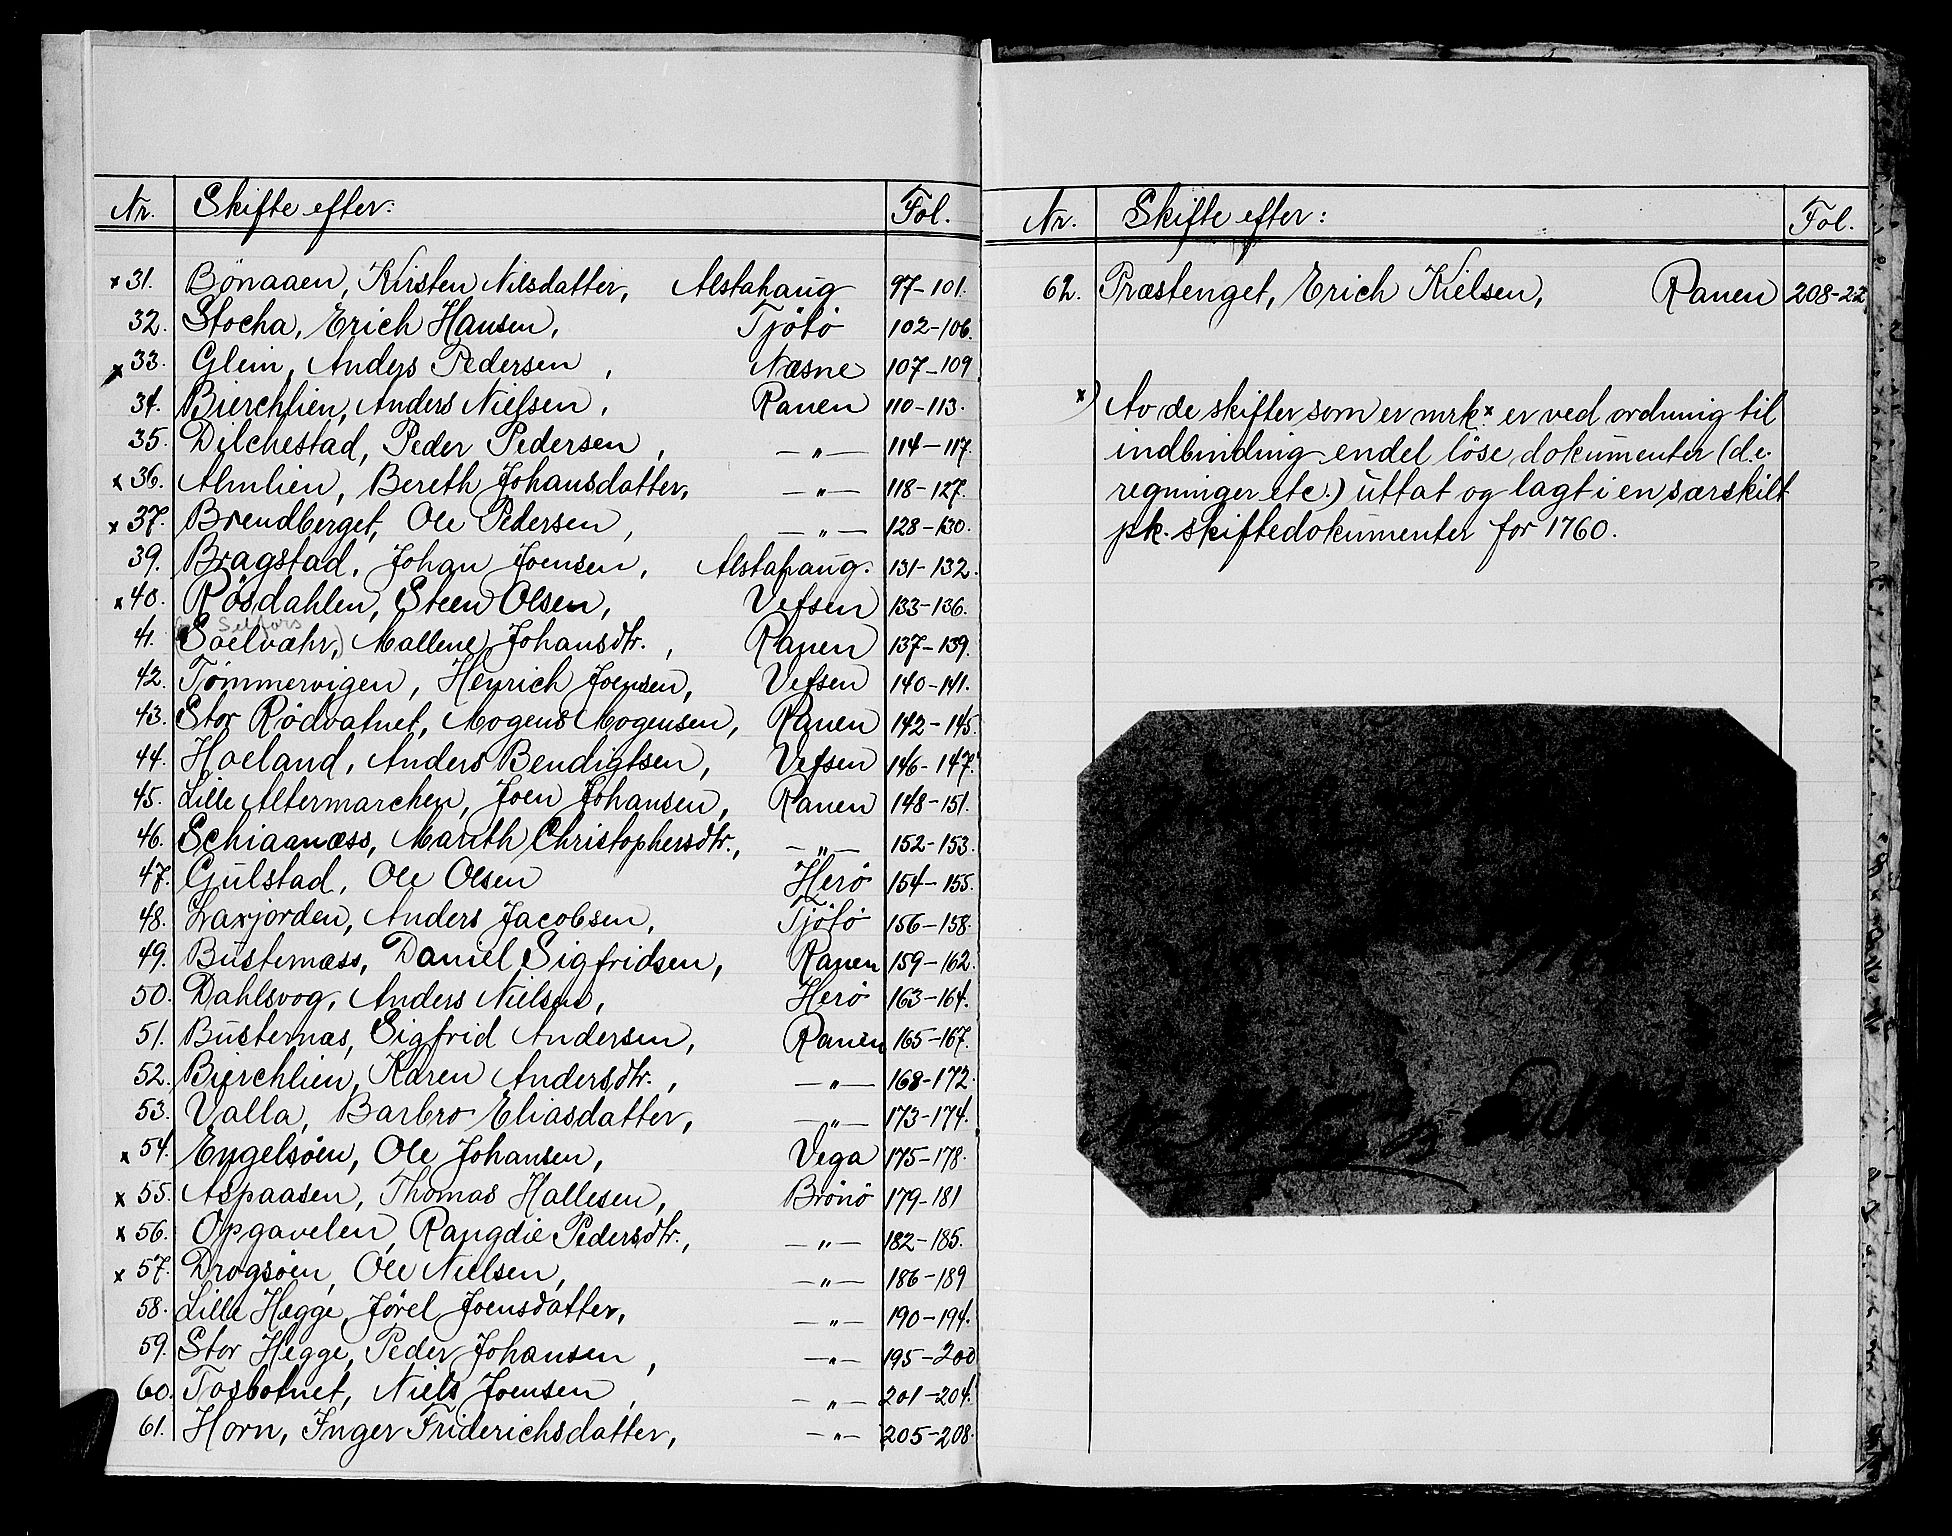 Nr. Skifte efter: Fol.
x 31. Bönaaen, Kirsten Nilsdatter, Alstahaug 97-101.
32. Stocha, Erich Hansen, Tjötö 102-106.
x 33. Glein, Anders Pedersen, Næsne 107-109
34. Bierchlien, Anders Nielsen, Ranen 110-113.
35. Dilchestad, Peder Pedersen, —„— 114-117.
x 36. Almlien, Bereth Johansdatter, —„— 118-127.
x 37. Brendberget, Ole Pedersen, —„— 128-130.
39. Bragstad, Johan Joensen, Alstahaug. 131-132.
x 40. Røsdahlen, Steen Olsen, Vefsen 133-136.
Selfors
41. Soelvæhr, Mallene Johansdtr., Ranen 137-139.
42. Tømmervigen, Henrich Joensen, Vefsen 140-141.
43. Stor Rödvatnet, Mogens Mogensen, Ranen 142-145.
44. Hoeland, Anders Bendigtsen, Vefsen 146-147.
45. Lille Altermarchen, Joen Johansen, Ranen 148-151.
46. Schiaanæss, Marith Christophersdtr., —„— 152-153.
47. Gulstad, Ole Olsen Herö 154-155.
48. Laxjorden, Anders Jacobsen, Tjötö 156-158.
49. Busternæss, Daniel Sigfridsen, Ranen 159-162.
50. Dahlsvog, Anders Nielsen, Herö 163-164.
51. Busternæs, Sigfrid Andersen, Ranen 165-167.
52. Bierchlien, Karen Andersdtr., —„— 168-172.
53. Valla, Barbro Eliasdatter, —„— 173-174.
x 54. Engelsöen, Ole Johansen, Vega 175-178.
x 55. Aspaasen, Thomas Hallesen, Brönö 179-181
x 56. Opgavelen, Rangdie Pedersdtr., —„— 182-185.
x 57. Drogsöen, Ole Nielsen, —„— 186-189
58. Lille Hegge, Jörel Joensdatter, —„— 190-194.
59. Stor Hegge, Peder Johansen, —„— 195-200
60. Tosbotnet, Niels Joensen, —„— 201-204.
61. Horn, Inger Friderichsdatter, —„— 205-208.
Nr. Skifte efter: Fol.
62. Præstenget, Erich Kielsen, Ranen 208-22
x) Av de skifter som er mrk. x er ved ordning til
indbinding endel löse dokumenter (d.e.
regninger etc.) uttat og lagt i en særskilt
pk. skiftedokumenter for 1760.